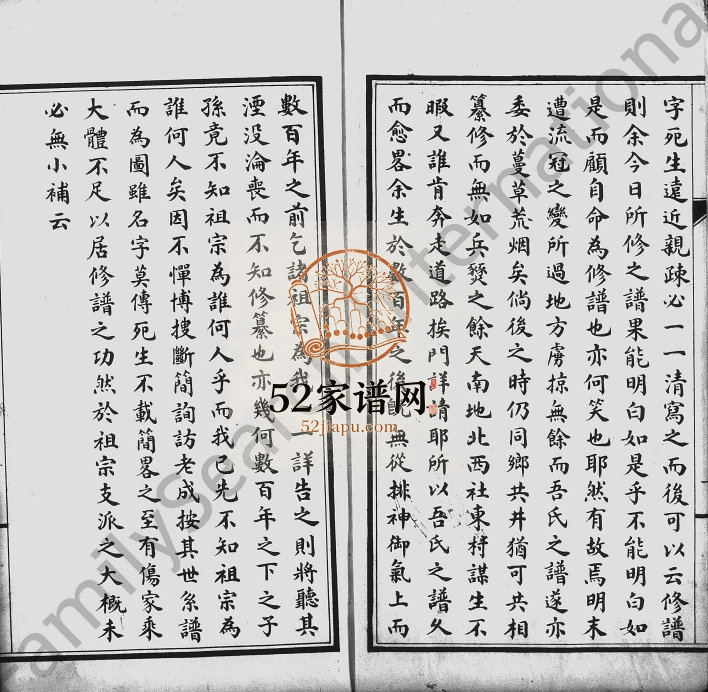 字死生遠近親疎必一一清寫之而後可以云修譜
則余今日所修之譜果能明白如是乎不能明白如
是而顧自命為修譜也亦何笑也耶然有故焉明末
遭流冠之變所過地方虜掠無餘而吾氏之譜遂亦
委於蔓草荒烟矣倘後之時仍同鄉共井猶可共相
纂修而無如兵燹之餘天南地北西社東村謀生不
暇又誰肯奔走道路挨門詳清耶所以吾氏之譜久
而愈畧余生於數百年之後既無從排神御氣上而
數百年之前乞諸祖宗為我一一詳告之則將聽其
湮没淪喪而不知修纂也亦幾何數百年之下之子
孫竟不知祖宗為誰何人乎而我已先不知祖宗為
誰何人矣因不憚博搜斷簡詢訪老成按其世系譜
而為圖雖名字莫傳死生不載簡畧之至有傷家乘
大體不足以居修譜之功然於祖宗支派之大概未
必無小補云
52家谱网
52jiapu.com
FamilySearch International